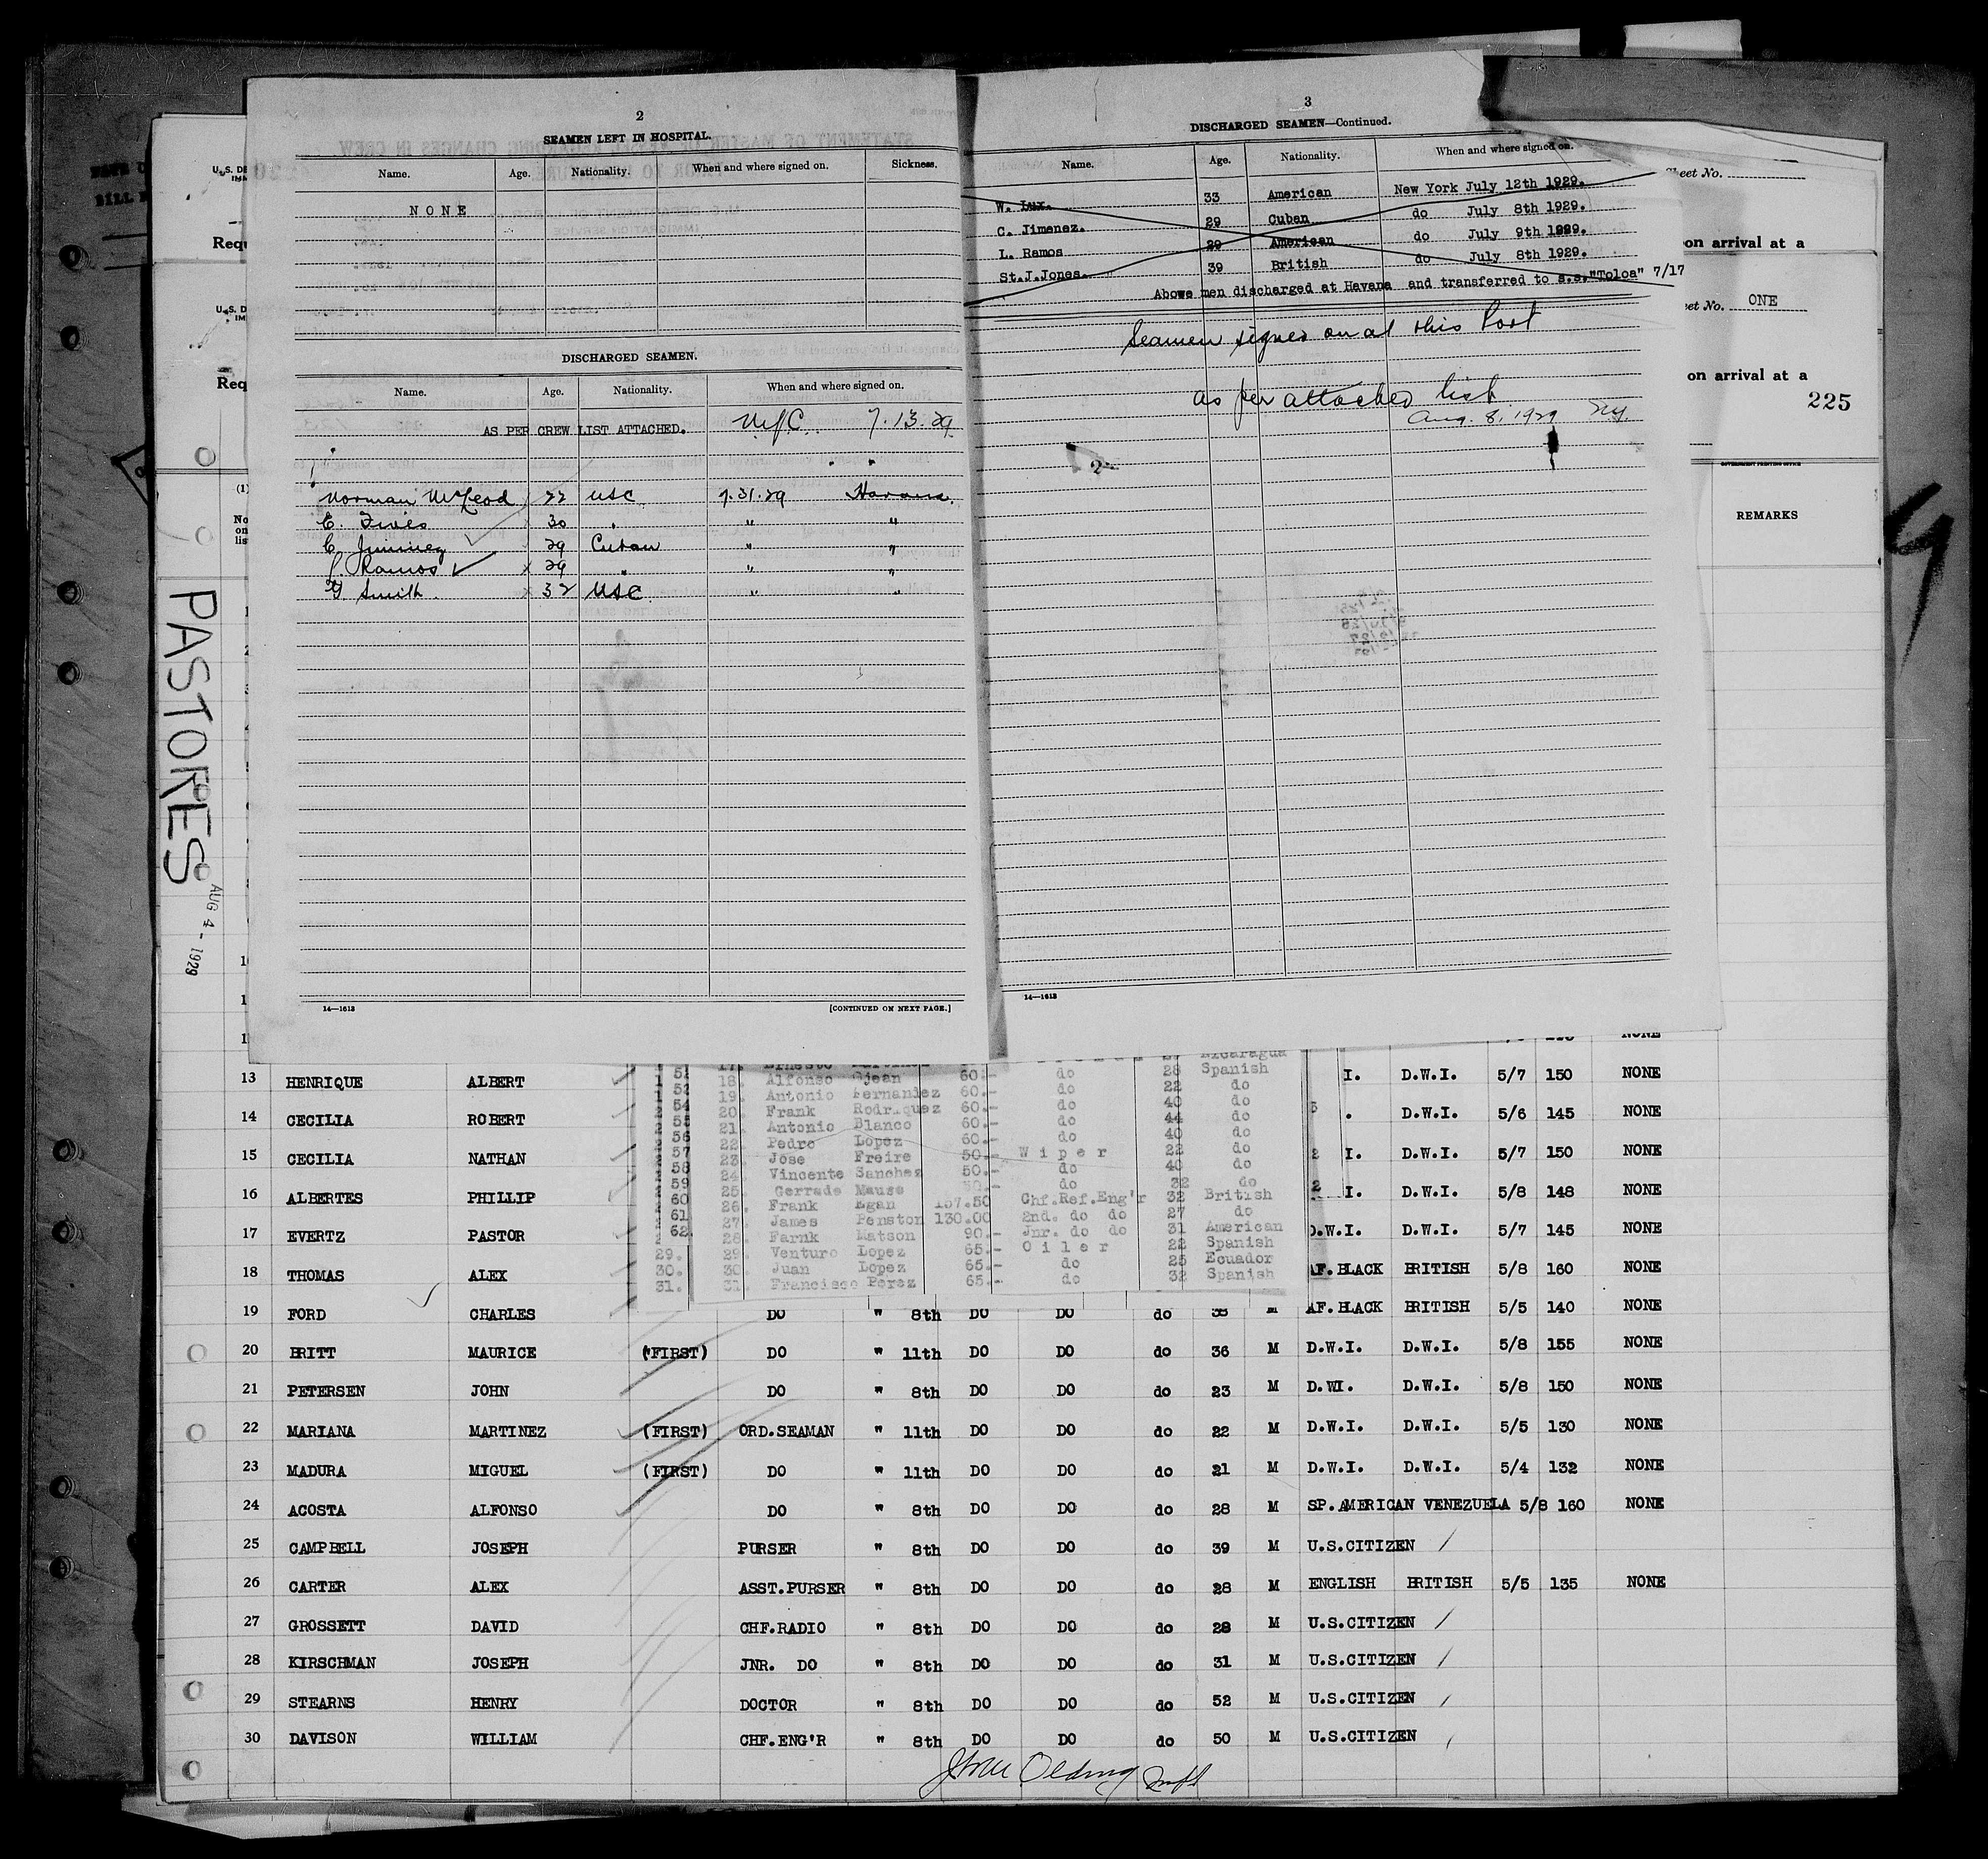 2
SEAMEN LEFT IN HOSPITAL.
Name. Age. Nationality. When and where signed on. Sickness.
NONE
DISCHARGED SEAMEN.
Name. Age. Nationality. When and where signed on.
AS PER CREW LIST ATTACHED. 7.13.29
Norman McLeod 22 USC 7.31.29 Havana.
E. 30 " " "
C. 29 Cuban " "
L. Ramos 29 " " "
G Smith. 32 USC " "
14—1613 [CONTINUED ON NEXT PAGE.]
3
DISCHARGED SEAMEN—Continued.
Name. Age. Nationality. When and where signed on.
W. Lux. 33 American New York July 12th 1929.
C. Jimenez. 29 Cuban do July 8th 1929.
L. Ramos 29 American do July 9th 1929.
St.J.Jones. 39 British do July 8th 1929.
Above men discharged at Havana and transferred to s.s."Toloa" 7/17
Seamen signed on at this Port
as per attached list
Aug. 8, 1929 NY.
2
14—1613
Sheet No.
on arrival at a
eet No. ONE
on arrival at a
225
GOVERNMENT PRINTING OFFICE
REMARKS
U.S. DE
Requ
U.S. D
Req
(1)
No
on
lis
PASTORES
AUG 4 - 1929
NONE
18. Alfonso Ojean 60.- do 28 Spanish
19. Antonio Fernandez 60.- do 22 do
20. Frank Rodriquez 60.- do 40 do
21. Antonio Blanco 60.- do 44 do
22. Pedro Lopez 60.- do 40 do
23. Jose Freire 50.- Wiper 22 do
24. Vincente Sanchez 50.- do 40 do
25. Gerrado Mause 50.- do 32 do
26. Frank Egan 157.50 Chf.Ref.Eng'r 32 British
27. James Penston 130.00 2nd. do do 27 do
28. Farnk Matson 90.- Jnr. do do 31 American
29. 29. Venturo Lopez 65.- Oiler 22 Spanish
30. 30. Juan Lopez 65.- do 25 Ecuador
31. 31. Francisco Perez 65.- do 32 Spanish
13 HENRIQUE ALBERT I. D.W.I. 5/7 150 NONE
14 CECILIA ROBERT . D.W.I. 5/6 145 NONE
15 CECILIA NATHAN I. D.W.I. 5/7 150 NONE
16 ALBERTES PHILLIP I. D.W.I. 5/8 148 NONE
17 EVERTZ PASTOR D.W.I. D.W.I. 5/7 145 NONE
18 THOMAS ALEX AF.BLACK BRITISH 5/8 160 NONE
19 FORD CHARLES DO " 8th DO DO do 38 M AF.BLACK BRITISH 5/5 140 NONE
20 BRITT MAURICE (FIRST) DO " 11th DO DO do 36 M D.W.I. D.W.I. 5/8 155 NONE
21 PETERSEN JOHN DO " 8th DO DO do 23 M D.WI. D.W.I. 5/8 150 NONE
22 MARIANA MARTINEZ (FIRST) ORD.SEAMAN " 11th DO DO do 22 M D.W.I. D.W.I. 5/5 130 NONE
23 MADURA MIGUEL (FIRST) DO " 11th DO DO do 21 M D.W.I. D.W.I. 5/4 132 NONE
24 ACOSTA ALFONSO DO " 8th DO DO do 28 M SP.AMERICAN VENEZUELA 5/8 160 NONE
25 CAMPBELL JOSEPH PURSER " 8th DO DO do 39 M U.S.CITIZEN
26 CARTER ALEX ASST.PURSER " 8th DO DO do 28 M ENGLISH BRITISH 5/5 135 NONE
27 GROSSETT DAVID CHF.RADIO " 8th DO DO do 28 M U.S.CITIZEN
28 KIRSCHMAN JOSEPH JNR. DO " 8th DO DO do 31 M U.S.CITIZEN
29 STEARNS HENRY DOCTOR " 8th DO DO do 52 M U.S.CITIZEN
30 DAVISON WILLIAM CHF.ENG'R " 8th DO DO do 50 M U.S.CITIZEN